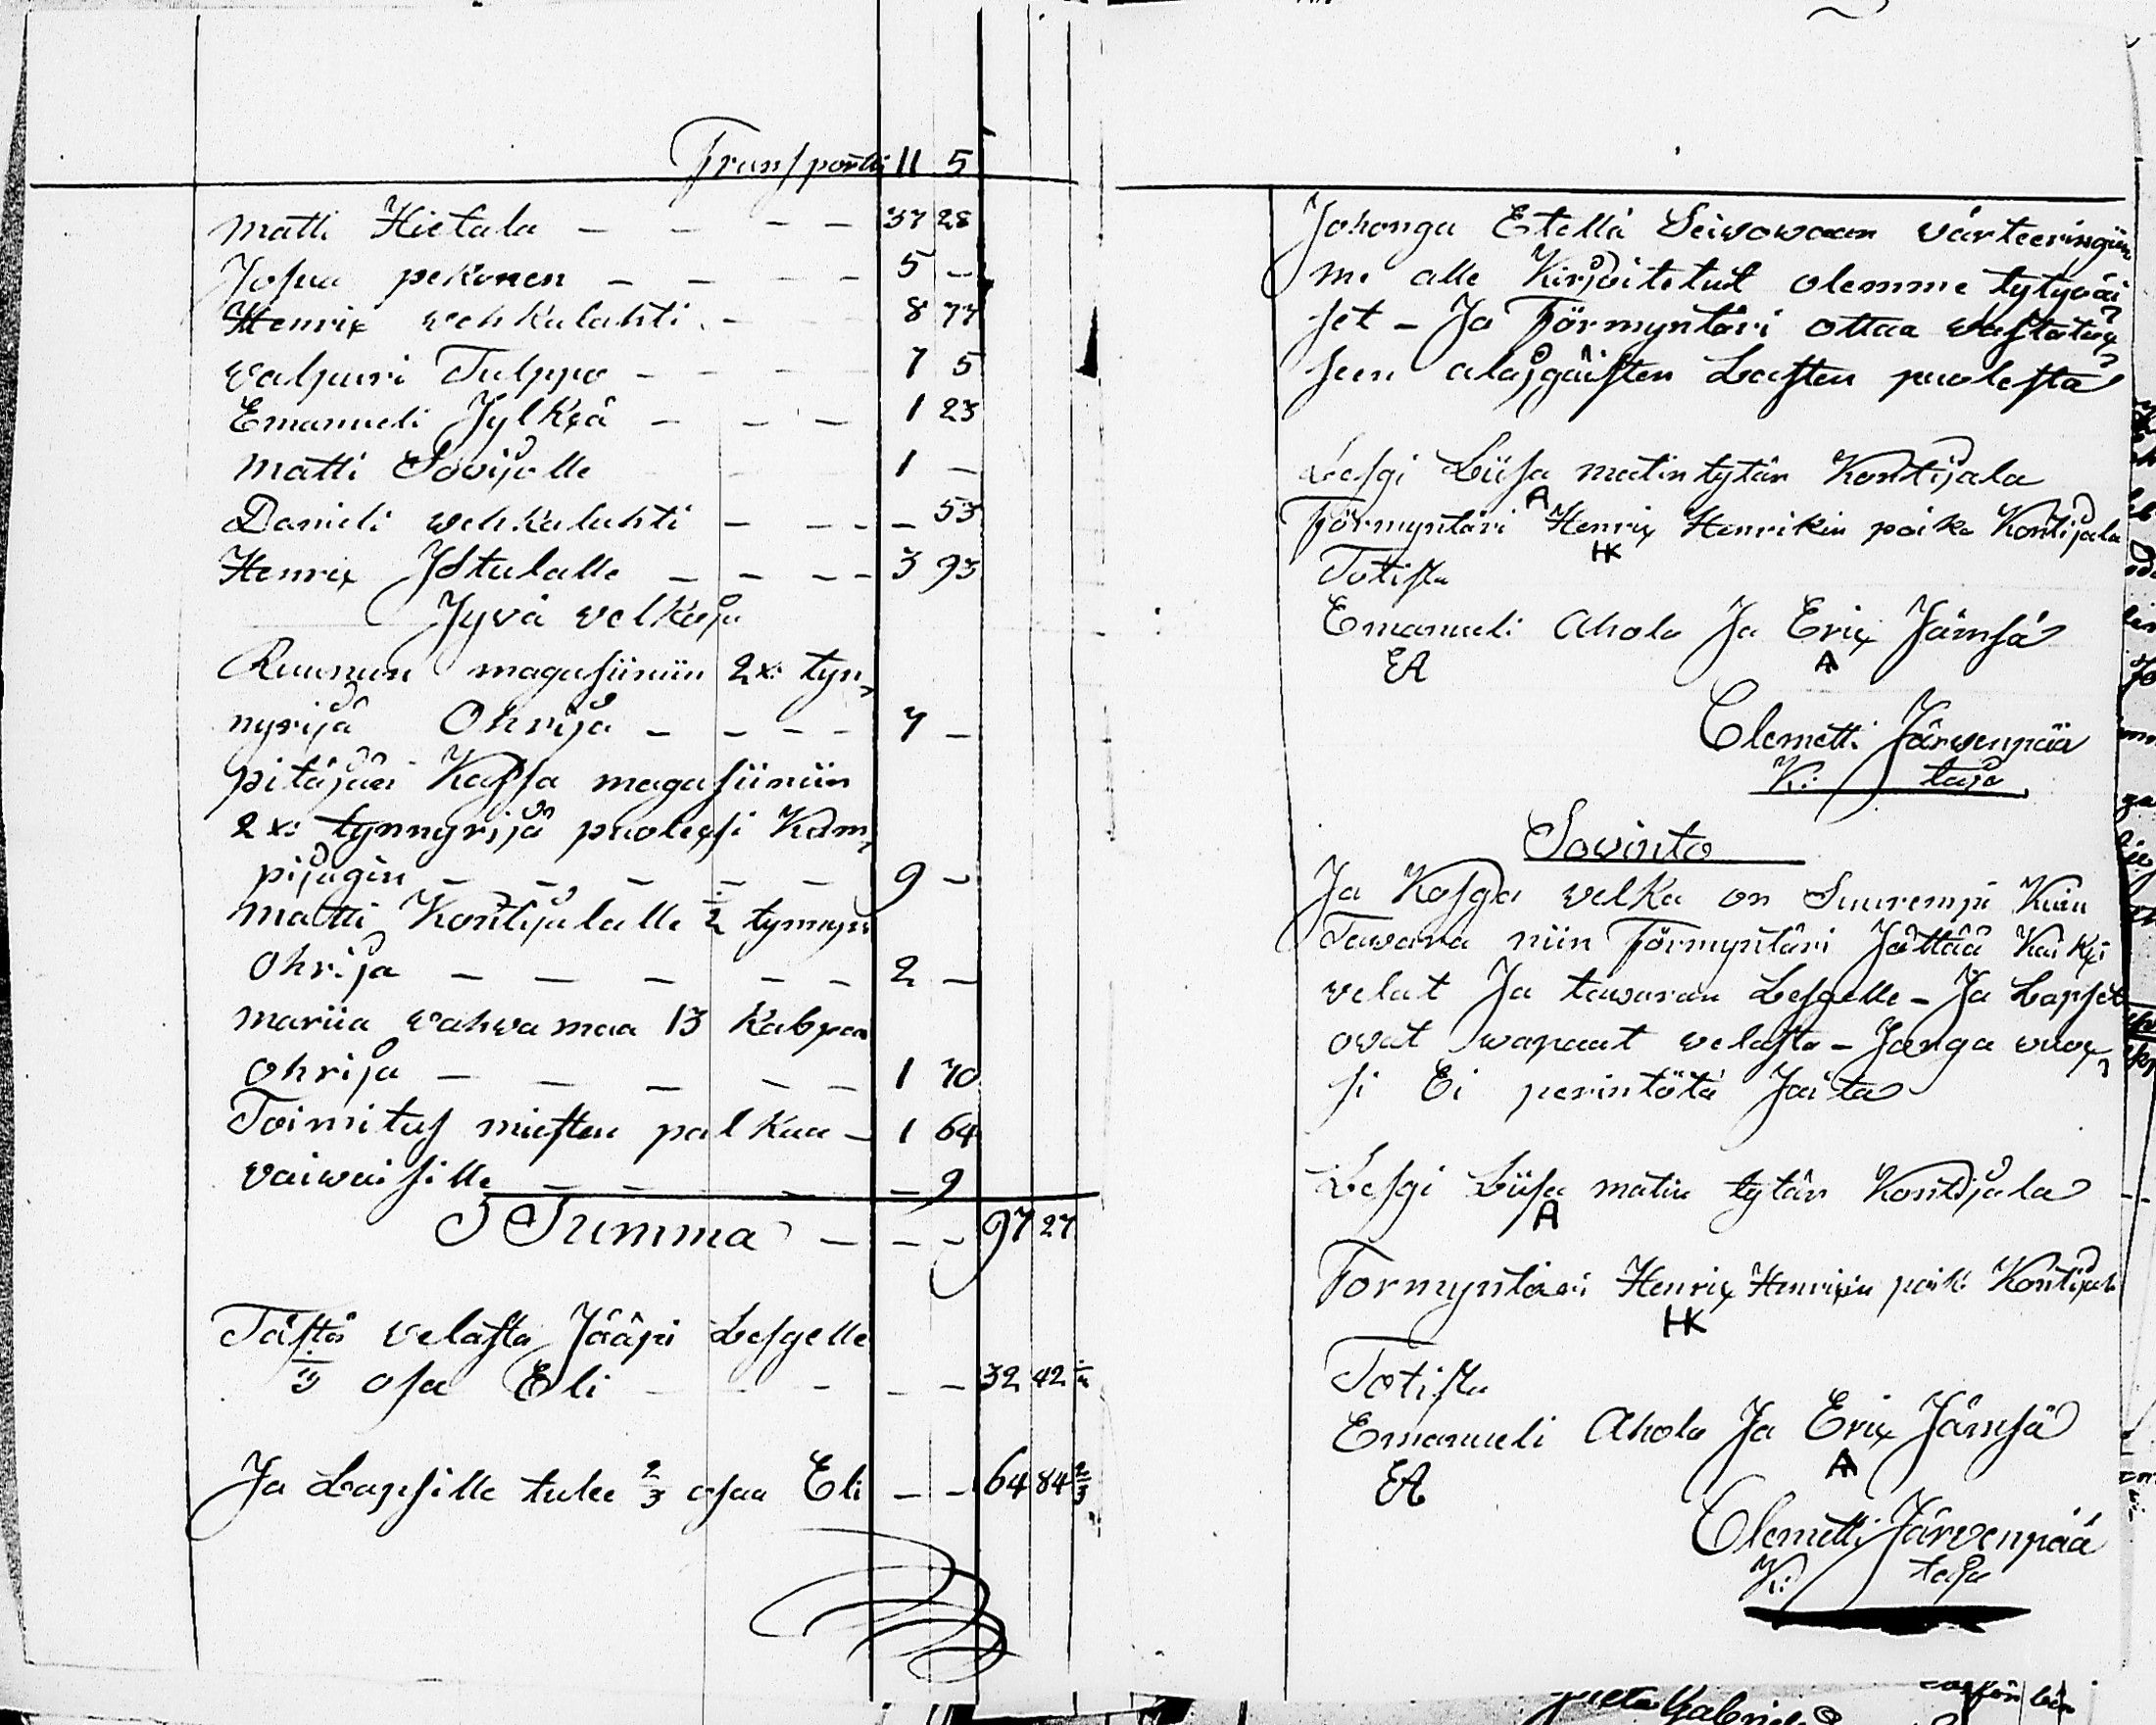 Transportti 11 5
Matti Hietala - - - - 37 28
Josua pekonen - - - - 5 -
Henrix wehkalahti - - - 8 77
Valpuri Tulppo - - - - 7 5
Emanueli Jylkxä - - - 1 23
Matti Sovijolle - - 1 -
Danieli wehkalahti - - - - 53
Henrix Jstulalle - - - - 3 93
Jyvä velkoja
Ruunun magasiiniin 2x: tyn,
nyrijä Ohrija - - - - 7 -
pitäjän Kassa magasiiniin
2x: tynnyrijä puolexsi Kam,
pijagin - - - - - 9 -
Matti Kontijalalle ½ tynnyri
Ohrija - - - - - 2 -
mariia vahvamaa 13 Kabpaa
ohrija - - - - - 1 70
Toimitus miesten palkaa - 1 64
vaiwaisille - - - - 9
Summa - - - 97 27
Tästä velasta Jääpi Lesgelle
⅓ osa Eli - - - - 32 42
Ja Lapsille tulee ⅔ osaa Eli - - 64 84 ⅔
Johonga Etellä Seisowaan värteeringiin
me alle Kirjoitetut olemme tytyväi
set - Ja Förmyntäri ottaa vastatux
sen alajgäisten Lasten puolesta
Lesgi Liisa matin tytär Kontijala
A
Förmyntäri Henrix Henrikin poika Kontijala
HK
Totista
Emanueli Ahola Ja Erix Jämsä
EA A
Clemetti Järvenpää
K: taja
Sovinto
Ja Kosga velka on Suurempi Kuin
Tavara niin Förmyntäri Jättää Kaikxi
velat Ja tavaran Lesgelle - Ja Lapset
ovat wapaat velasta - Jonga vuox,
si Ei perintötä Jäitä
Lesgi Liisa matin tytär Kontijala
A
Formyntäri Henrix Henrixin poik: Kontijala
HK
Totista
Emanueli Ahola Ja Erix Jämsä
EA A
Clemetti Järvenpää
K: taja